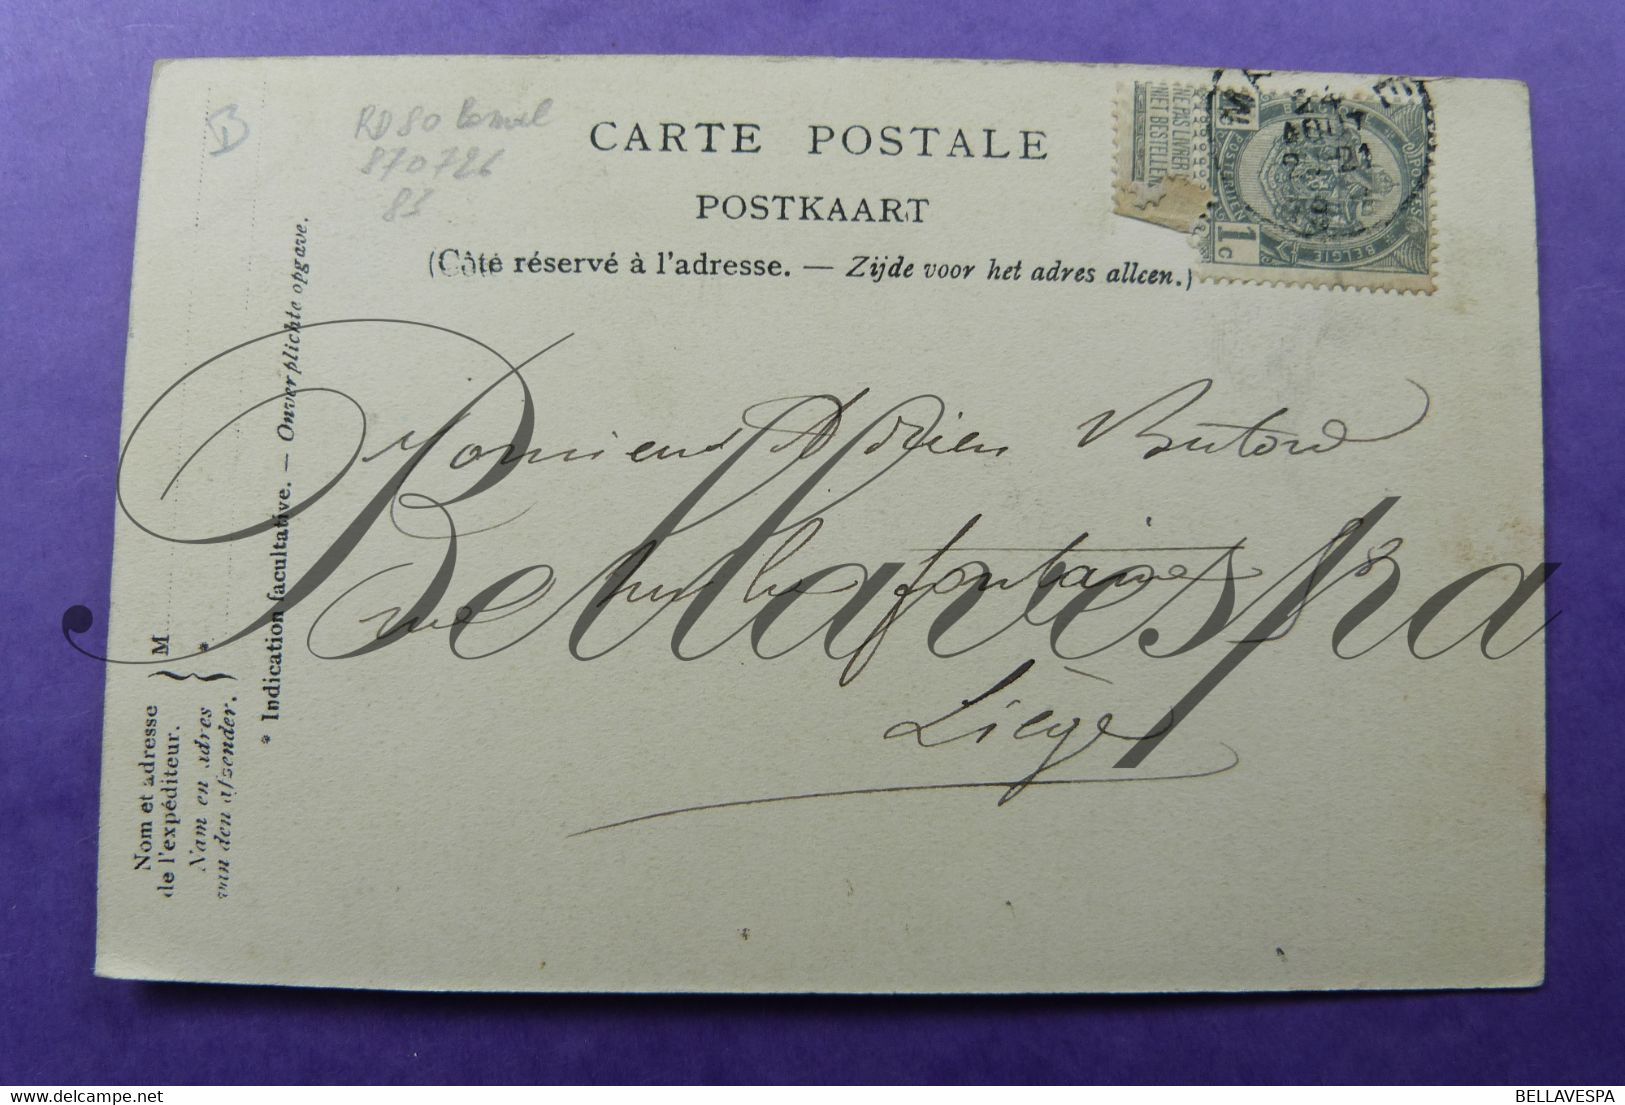 CARTE POSTALE
POSTKAART
(Côté réservé à l'adresse. — Zijde voor het adres alleen.)
NE PAS LIVRER
NIET BESTELLEN
POSTERIEN
BELGIE
1c
24
AOUT
Monsieur Adrien Butord
rue sur la fontaine 83
Liège
Nom et adresse
de l'expéditeur.
Nam en adres
van den afzender.
M
*
* Indication facultative. — Onverplichte opgave.
RD80 Bomal
870726
83
Bellavespa
BELLAVESPA